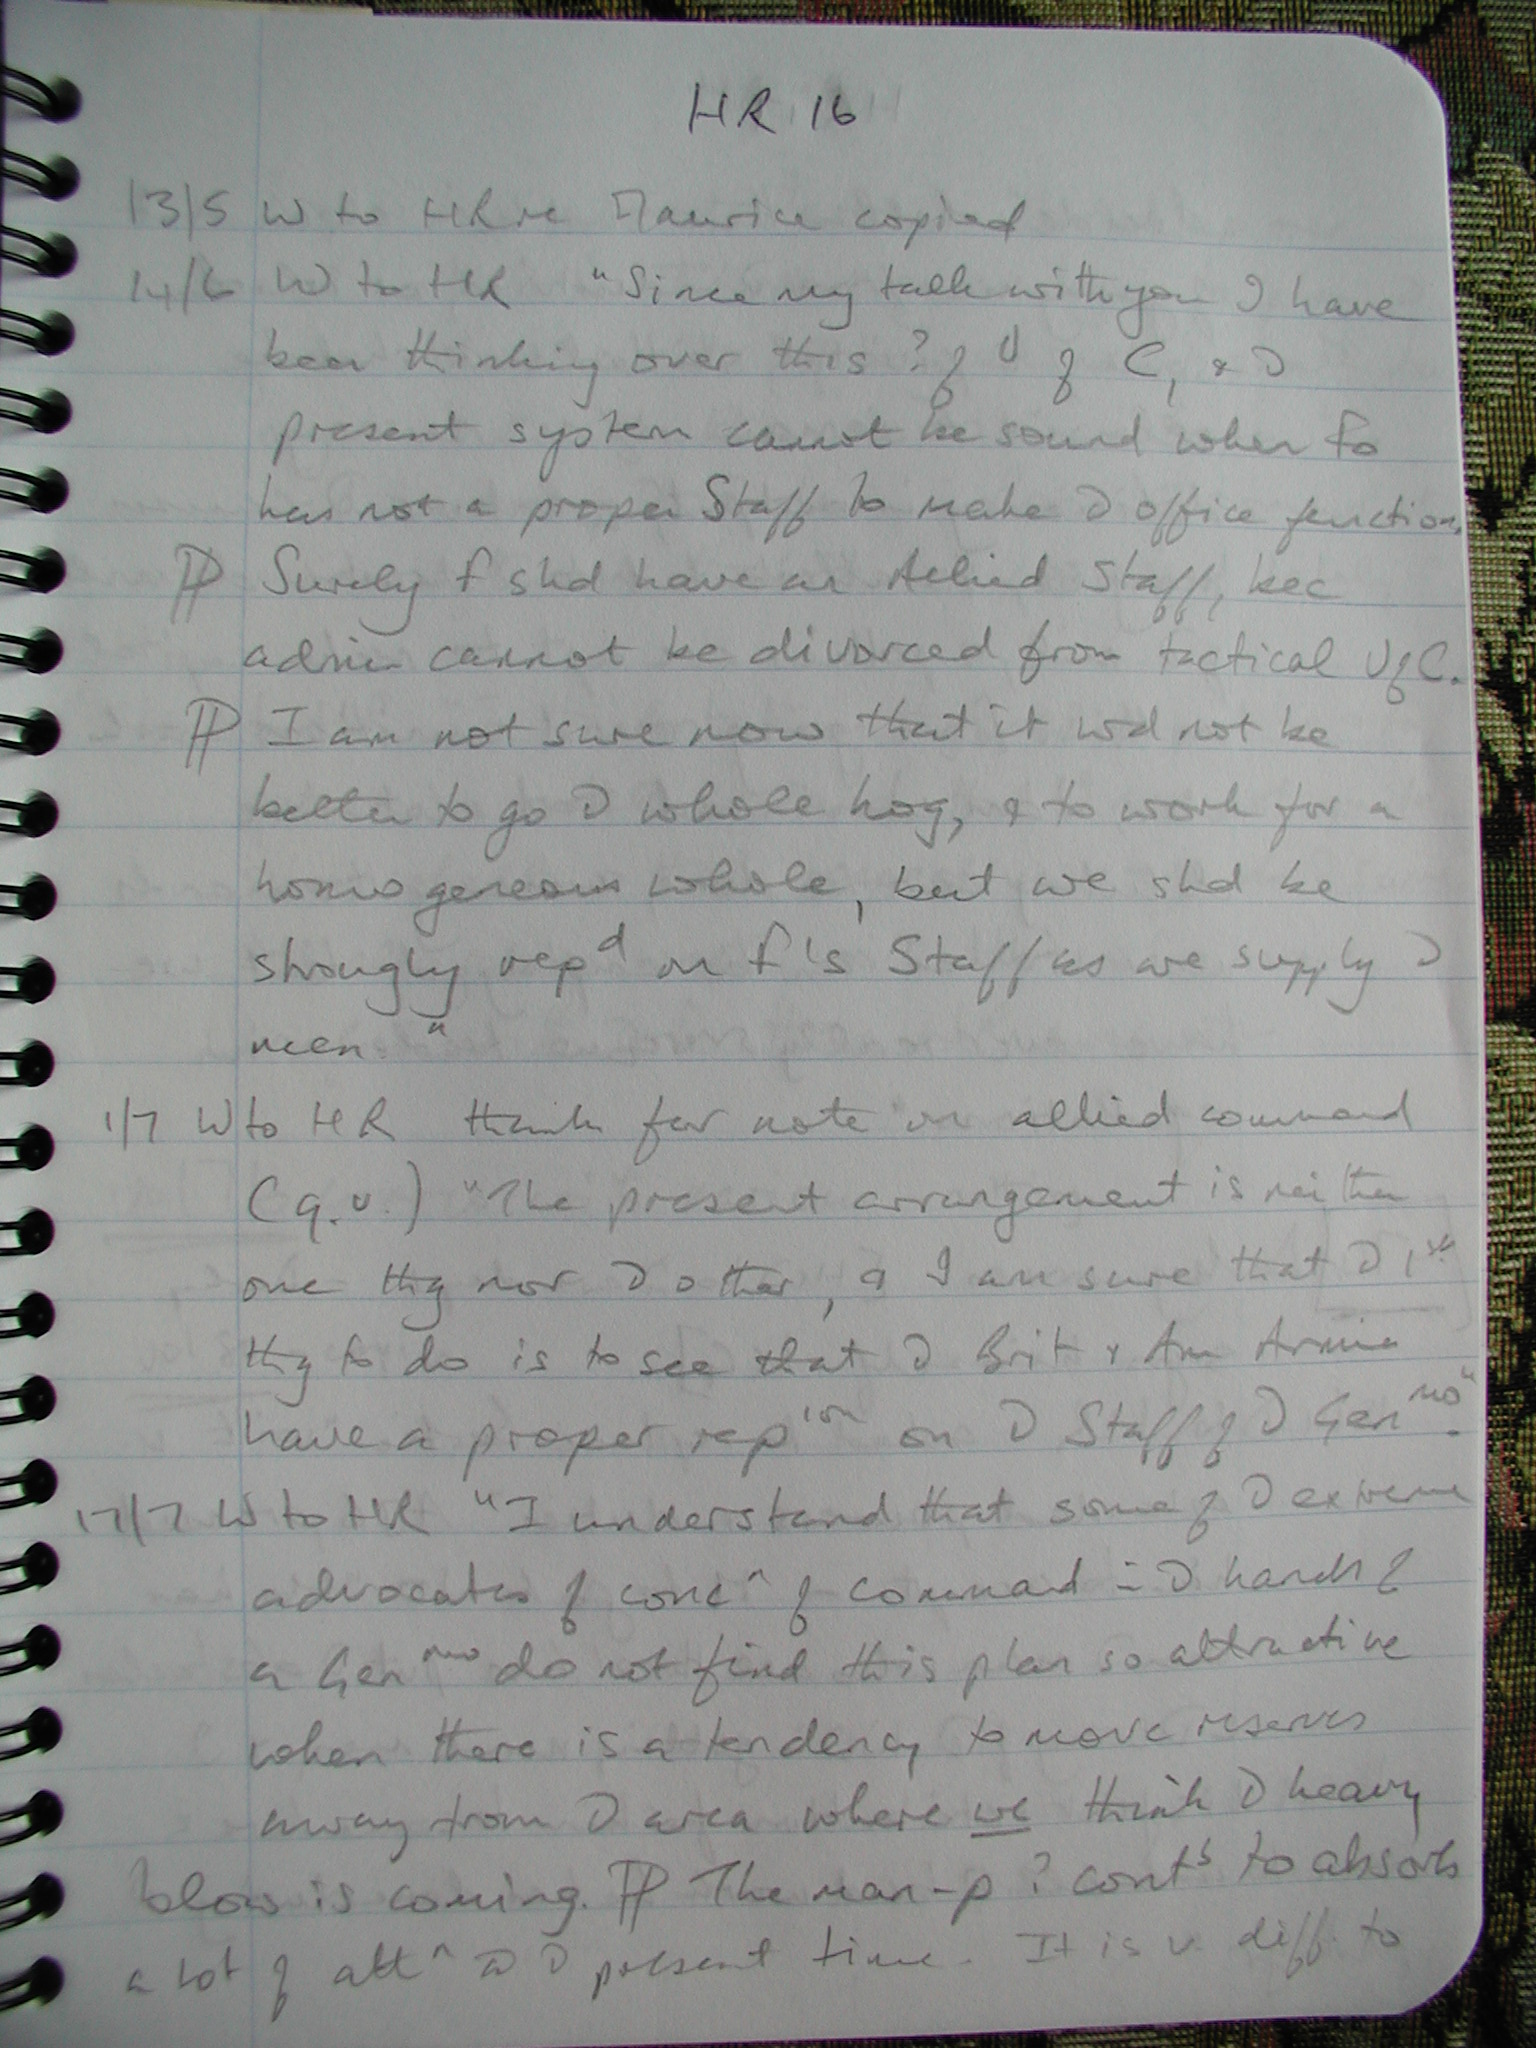 HR 16
13/5 W to HR re Maurice copied
14/6 W to HR "Since my talk with you I have
been thinking over this ? of U of C, & D
present system cannot be sound when Fo
has not a proper Staff to make D office function.
PP Surely F shd have an Allied Staff, bec
admin cannot be divorced from tactical U of C.
PP I am not sure now that it wd not be
better to go D whole hog, & to work for a
homogeneous whole, but we shd be
strongly repd on F's Staff as we supply D
men."
1/7 W to HR thank for note on allied command
(q.v.) "The present arrangement is neither
one thg nor D other, & I am sure that D 1st
thg to do is to see that D Brit & Am Armies
have a proper rep'ion on D Staff of D Genmo."
17/7 W to HR "I understand that some of D extreme
advocates of concn of command in D hands of
a Genmo do not find this plan so attractive
when there is a tendency to move reserves
away from D area where we think D heavy
blow is coming. PP The man-p ? conts to absorb
a lot of attn at D present time. It is v. diff. to